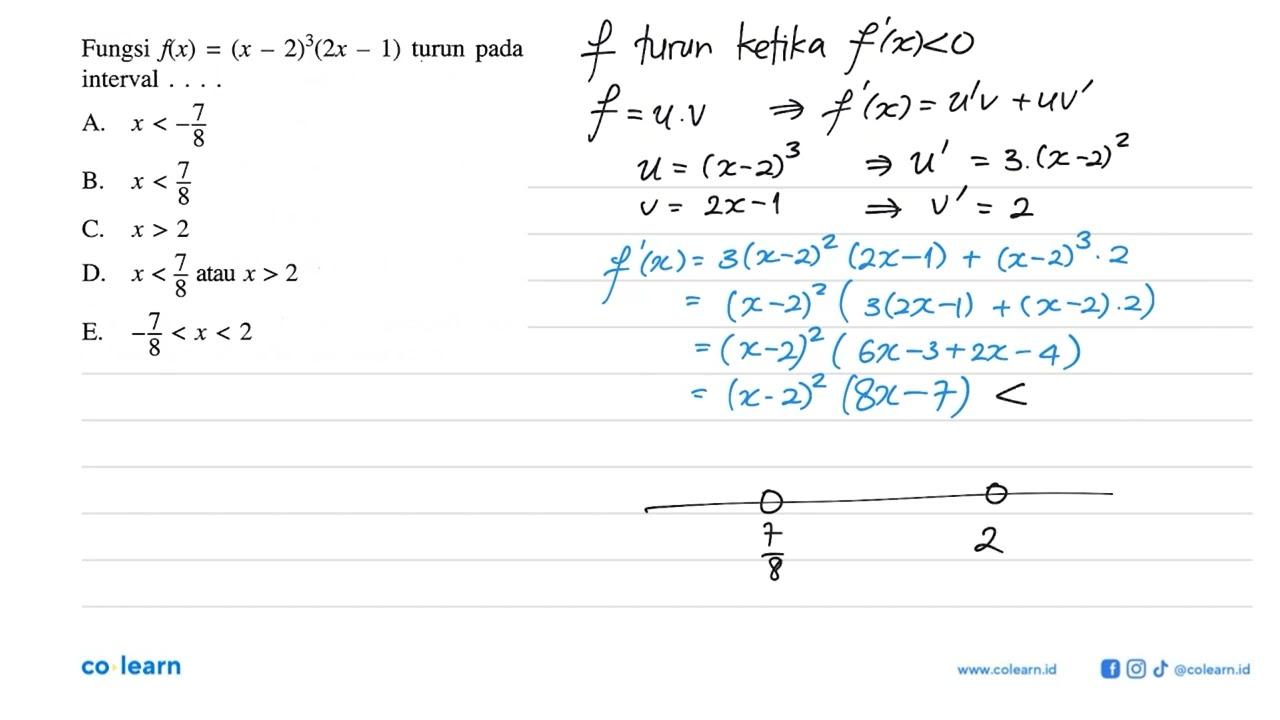 Fungsi f(x) = (x − 2)³(2x − 1) turun pada
interval . . . .
A. x < −7/8
B. x < 7/8
C. x > 2
D. x < 7/8 atau x > 2
E. −7/8 < x < 2
f turun ketika f'(x)<0
f = u.v ⇒ f'(x) = u'v + uv'
u = (x-2)³ ⇒ u' = 3.(x-2)²
v = 2x-1 ⇒ v' = 2
f'(x) = 3(x-2)² (2x-1) + (x-2)³.2
= (x-2)² ( 3(2x-1) + (x-2).2)
= (x-2)² ( 6x-3+2x-4)
= (x-2)² (8x-7) <
7/8 2
co learn
www.colearn.id
@colearn.id